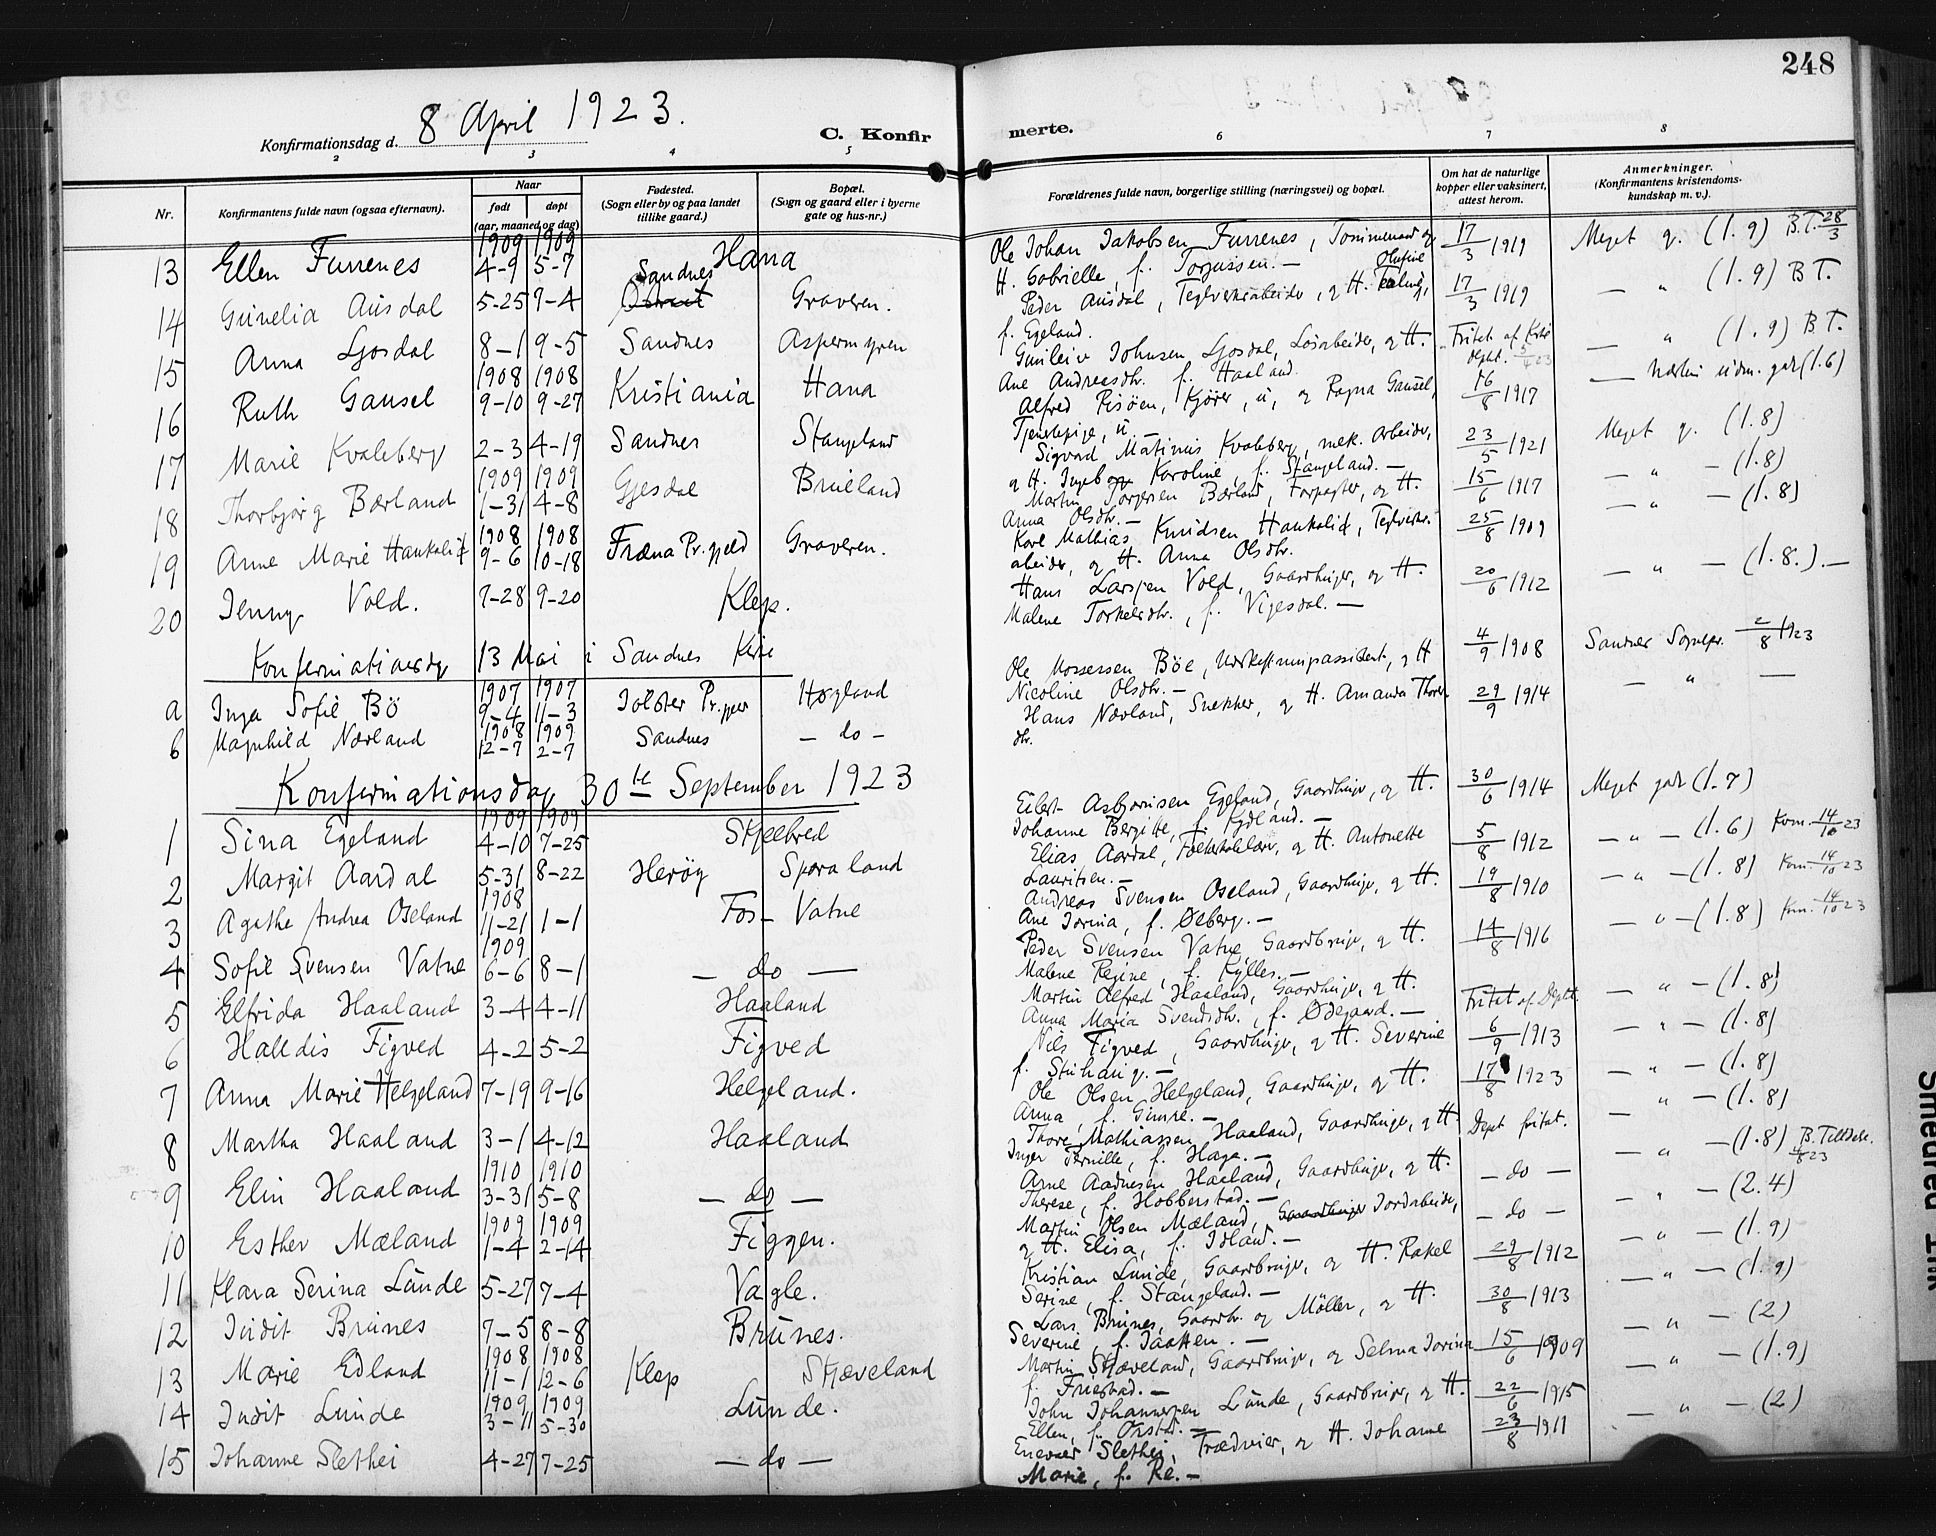 248
8 April 1923.
Konfirmationsdag d.
C. Konfirmerte.
2 3 4 5 6 7 8
Nr.
Konfirmantens fulde navn (ogsaa efternavn).
Naar
født døpt
(aar, maaned og dag)
Fødested.
(Sogn eller by og paa landet
tillike gaard.)
Bopæl.
(Sogn og gaard eller i byerne
gate og hus-nr.)
Forældrenes fulde navn, borgerlige stilling (næringsvei) og bopæl.
Om hat de naturlige
kopper eller vaksinert,
attest herom.
Anmerkninger.
(Konfirmantens kristendoms-
kundskap m. v.).
1909 1909
13 Ellen Furrenes 4-9 5-7 Hana Ole Johan Jakobsen Furrenes, Tømmermand og 17/3 1919 Meget g. (1.9) B.T. 28/3
H. Gabrielle, f. Torjussen. —
14 Gunelia Ausdal 5-25 9-4 Sandnes Graveren. Peder Ausdal, Teglverksarbeider, og H. Olufine 17/3 1919 — " (1.9) B T.
f. Egeland.
15 Anna Ljosdal 8-1 9-5 Sandnes Aspermyren Gunleiv Johnsen Ljosdal, Løsarbeider, og H. Fritat af Kirke
dept. (1.9) B T.
Ane Andreasdtr. f. Haaland.
1908 1908
16 Ruth Gausel 9-10 9-27 Kristiania Hana Alfred Risöen, Kjører, u, og Ragna Gausel, 16/8 1917 — Næsten udm. godt (1.6)
Tjenestepige, u. —
17 Marie Kvaleberg 2-3 4-19 Sandnes Stangeland Sigvard Matinius Kvaleberg, mek. Arbeider, 23/5 1921 Meget g. (1.8)
og H. Ingeborg Karoline, f. Stangeland. —
1909 1909
18 Thorbjørg Bærland 1-31 4-8 Gjesdal Brueland Martin Torgersen Bærland, Forpagter, og H. 15/6 1917 — " — (1.8)
Anna Olsdtr. —
1908 1908
19 Anne Marie Haukalid 9-6 10-18 Fræna Pr.gjeld Graveren. Karl Mathias Knudsen Haukalid, Teglverks- 25/8 1909 — " — (1.8)
arbeider, og H. Anna Olsdtr.
20 Jenny Vold. 7-28 9-20 Klep. Hans Larsen Vold, Gaardbruger, og H. 20/6 1912 — " — (1.8.). —
Malene Torkelsdtr., f. Vigesdal. —
Konfirmationsdag 13 Mai i Sandnes Kirke
1907 1907
a Inga Sofie Bö 9-4 11-3 Jölster Pr.gjeld Høgland Ole Mossersen Böe, og H 4/9 1908 Sandnes Sognepr. 2/8 1923
Nicoline Olsdtr. —
1908 1909
b Magnhild Nærland 12-7 2-7 Sandnes — do — Hans Nærland, Snekker, og H. Amanda Thores- 29/9 1914 — " —
dtr.
Konfirmationsdag 30te September 1923
1909 1909
1 Sina Egeland 4-10 7-25 Skjelbred Eilert Asbjørnsen Egeland, Gaardbruger, og H. 30/6 1914 Meget godt (1.7)
Johanne Bergitte, f. Kydland. —
2 Margit Aardal 5-31 8-22 Herøy Sporaland Elias Aardal, Folkeskolelærer, og H. Antonette 5/8 1912 — " — (1.6) Kom. 14/10 23
Lauritsen. —
1908
3 Agathe Andrea Oseland 11-21 1-1 Fos- Vatne Andreas Svensen Oseland, Gaardbruger, og H. 19/8 1910 — " — (1.8) Kom. 14/10 23
Ane Jorina, f. Øeberg. —
1909
4 Sofie Svensen Vatne 6-6 8-1 — do — Peder Svensen Vatne, Gaardbruger, og H. 14/8 1916 — " — (1.8) Kom. 14/10 23
Malene Regine, f. Kylles. —
5 Elfrida Haaland 3-4 4-11 Haaland Martin Alfred Haaland, Gaardbruger, og H. Fritat af Deptt. — " — (1.8)
Anna Maria Svendsdtr., f. Ødegaard. —
6 Halldis Figved 4-2 5-2 Figved Nils Figved, Gaardbruger, og H. Severine 6/9 1913 — " — (1.8)
f. Stuhaug. —
7 Anna Marie Helgeland 7-19 9-16 Helgeland. Ole Olsen Helgeland, Gaardbruger, og H. 17/8 1923 — " — (1.8)
Anna, f. Gimre. —
8 Martha Haaland 3-1 4-12 Haaland Thore Mathiassen Haaland, Gaardbruger, og H. Dept fritat. — " — (1.8)
Inger Pernille, f. Haga. —
1910 1910
9 Elin Haaland 3-31 5-8 — do — Arne Aadnesen Haaland, Gaardbruger, og H. — do — — " — (1.8) B. Tilldele.
Therese, f. Hobberstad. —
1909 1909
10 Esther Mæland 1-4 2-14 Figgen. Martin Olsen Mæland, Gaardbruger Jordarbeider, — do — — " — (2.4)
og H. Elisa, f. Idland. —
11 Klara Serina Lunde 5-27 7-4 Vagle. Kristian Lunde, Gaardbruger, og H. Rakel 29/8 1912 — " — (1.9)
Serine, f. Stangeland. —
12 Judit Brunes 7-5 8-8 Brunes. Lars Brunes, Gaardbr. og Möller, og H. 30/8 1913 — " — (1.9)
Severine, f. Jaatten. —
1908 1908
13 Marie Edland 11-1 12-6 Klep Skjæveland Martin Skjæveland, Gaardbruger, og Selma Jorina 15/6 1909 — " — (2)
f. Fruestad. —
1909 1909
14 Judit Lunde 3-11 5-30 Lunde. John Johannessen Lunde, Gaardbruger, og H. 22/6 1915 — " — (1.9)
Ellen, f. Orstad. —
15 Johanne Slethei 4-27 7-25 — do — Enevær Slethei, Trædreier, og H. Johanne 23/8 1911 — " — (2)
Marie, f. Re. —